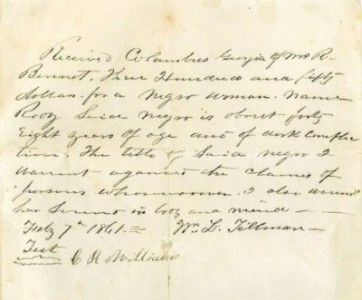 Received Columbus Georgia of Mr R.
Bennet. Three Hundred and fifty
dollars. for a Negro woman. Name
Said Negro is about forty
Eight years of age and of dark Complec
tion. The title of Said negro I
warrant against the Claims of
persons whomsoever. I also warrant
her Sound in body and mind —
Feby 7th 1861 Wm. L. Tillman
Test